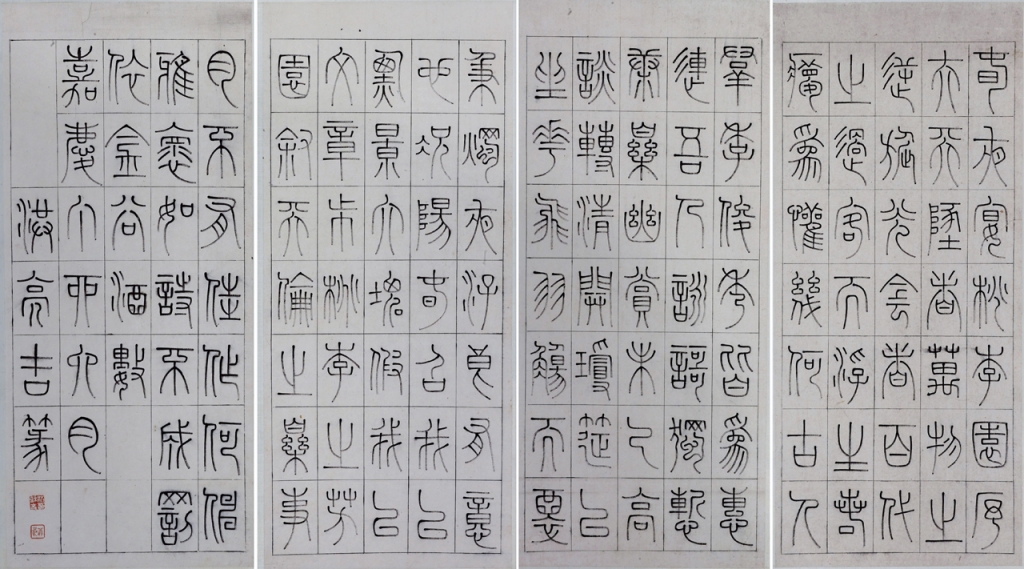 春夜宴桃李園序
夫天墬者萬物之
逆旅光陰者百代
之過客而浮生若
夢爲懽幾何古人
秉燭夜浮良有意
也況陽春召我以
煙景大塊假我以
文章桃李之芳
園叙天倫之樂事
羣季俊秀皆爲惠
連吾人詠謌獨慙
康樂幽賞未已高
談轉清開瓊筵以
坐花飛羽觴而醉
月不有佳作何伸
雅褱如詩不成罰
依金谷酒數
嘉慶丁卯六月
洪亮吉篆